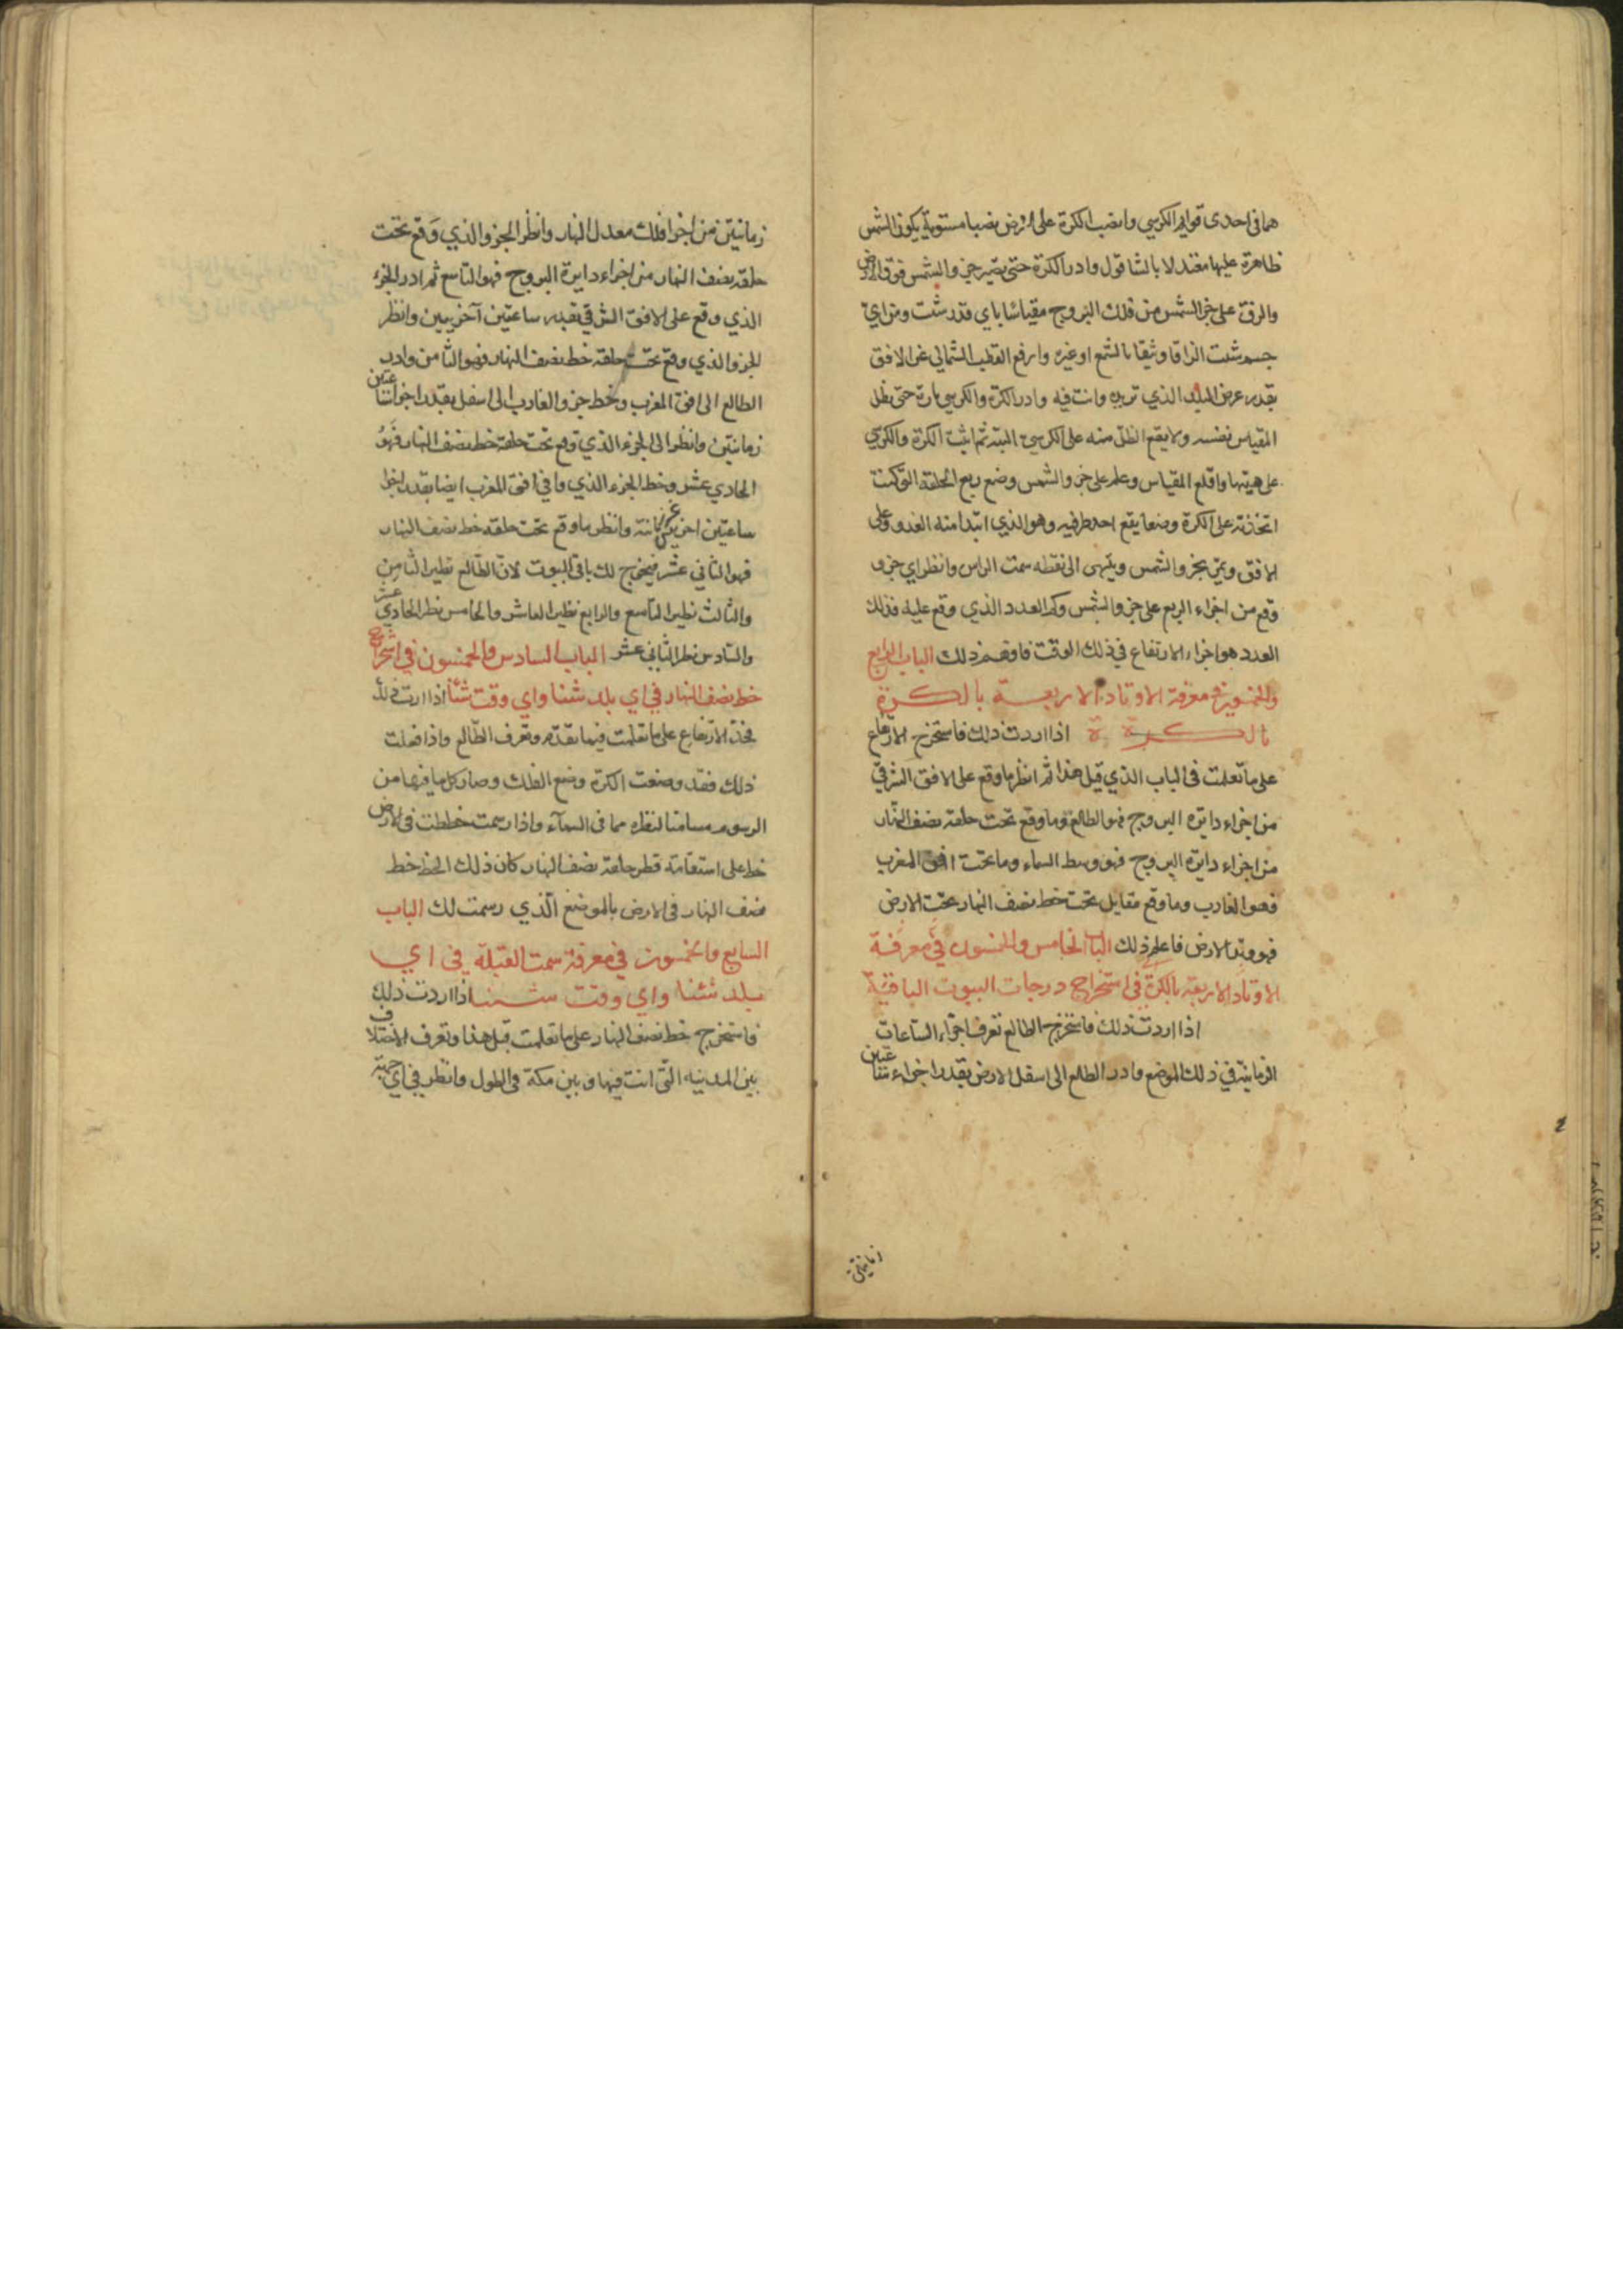 هما في احدى قوايم الكرسي وانصب الكرة على الارض نصبا مستويا يكون الشمس
ظاهرة عليها معتدلا بالشاقول وادر الكرة حتى يصير جزو الشمس فوق الارض
والزق على جزو الشمس من فلك البروج مقياسا باي قدر شئت ومن اي
جسم شئت الزاقا وثيقا بالشمع او غيره وارفع القطب الشمالي عن الافق
بقدر عرض البلد الذي تريده وانت فيه وادر الكرة والكرسي تارة حتى يظل
المقياس نفسه ولا يقع الظل منه على الكرسي البتة ثم اثبت الكرة والكرسي
على هيئتها واقلع المقياس وعلم على جزو الشمس وضع ربع الحلقة التي كنت
اتخذته على الكرة وضعا يقع احد طرفيه وهو الذي ابتدا منه العدد على
الافق ويمر بجزو الشمس وينتهي الى نقطه سمت الراس وانظر اي جزو
وقع من اجزاء الربع على جزو الشمس وكم العدد الذي وقع عليه فذلك
العدد هو اجزاء الارتفاع في ذلك الوقت فافهم ذلك الباب الرابع
والخمسون في معرفة الاوتاد الاربعـــة بالكـــرة
بالكـــرة ة اذا اردت ذلك فاستخرج الارتفاع
على ما تعلمت في الباب الذي قبل هذا ثم انظر ما وقع على الافق الشرقي
من اجزاء دايرة البروج فهو الطالع وما وقع تحت حلقة نصف النهار
من اجزاء دايرة البروج فهو وسط السماء وما تحت افق المغرب
فهو الغارب وما وقع مقابل تحت خط نصف النهار تحت الارض
فهو وتد الارض فاعلم ذلك الباب الخامس والخمسون في معرفة
الاوتاد الاربعة بالكرة في استخراج درجات البيوت الباقية
اذا اردت ذلك فاستخرج الطالع تعرف اجزاء الساعات
الزمانية في ذلك الموضع وادر الطالع الى اسفل الارض بقدر اجزاء ساعتين
زمانيتين
زمانيتين من اجزا فلك معدل النهار وانظر الجزو الذي وقع تحت
حلقة نصف النهار من اجزاء دايرة البروج فهو التاسع ثم ادر الجزء
الذي وقع على الافق الشرقي بقدر ساعتين آخريين وانظر
الجزو الذي وقع تحت حلقة خط نصف النهار فهو الثامن وادر
الطالع الى افق المغرب وتخط جزو الغارب الى اسفل بقدر اجزا ساعتين
زمانيتين وانظر الى الجزء الذي وقع تحت حلقة خط نصف النهار فهو
الحادي عشر وخط الجزء الذي وافي افق المغرب ايضا بقدر اجزا
ساعتين اخريين زمانية وانظر ما وقع تحت حلقه خط نصف النهار
فهو الثاني عشر فيخرج لك باقي البيوت لان الطالع نظير الثامن
والثالث نظير التاسع والرابع نظير العاشر والخامس نظر الحادي عشر
والسادس نظر الثاني عشر الباب السادس والخمسون في استخراج
خط نصف النهار في اي بلد شئنا واي وقت شئنا اذا اردت ذلك
فخذ الارتفاع على ما تعلمت فيما تقدم وتعرف الطالع واذا فعلت
ذلك فقد وضعت الكرة وضع الفلك وصار كل ما فيها من
الرسوم مسامتا لنظيره مما في السمآء واذا رسمت خططت في الارض
خط على استقامة قطر حلقة نصف النهار كان ذلك الخط خط
نصف النهار في الارض بالموضع الذي رسمت لك الباب
السابع والخمسون في معرفة سمت القبلة في اي
بلد شئنا واي وقت شئنا اذا اردت ذلك
فاستخرج خط نصف النهار على ما تعلمت قبل هذا وتعرف الاختلاف
بين المدينه التي انت فيها وبين مكة في الطول وانظر في اي جهة